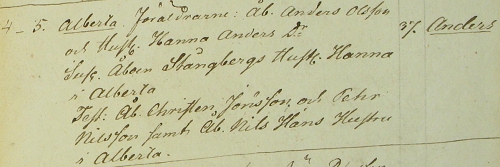 4 - 5. Alberta. Föräldrarne: Åb. Anders Olsson 37. Anders
och Hust. Hanna Anders Dr
Susc. Åboen Stangbergs Hust. Hanna
i Alberta
Test: Åb. Christen Jönsson och Pehr
Nilsson samt Åb. Nils Hans Hustru
i Alberta.